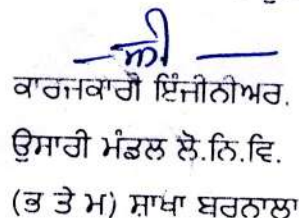 ਕਾਰਜਕਾਰੀ ਇੰਜੀਨੀਅਰ.
ਉਸਾਰੀ ਮੰਡਲ ਲੋ.ਨਿ.ਵਿ.
(ਭ ਤੇ ਮ) ਸ਼ਾਖਾ ਬਰਨਾਲਾ